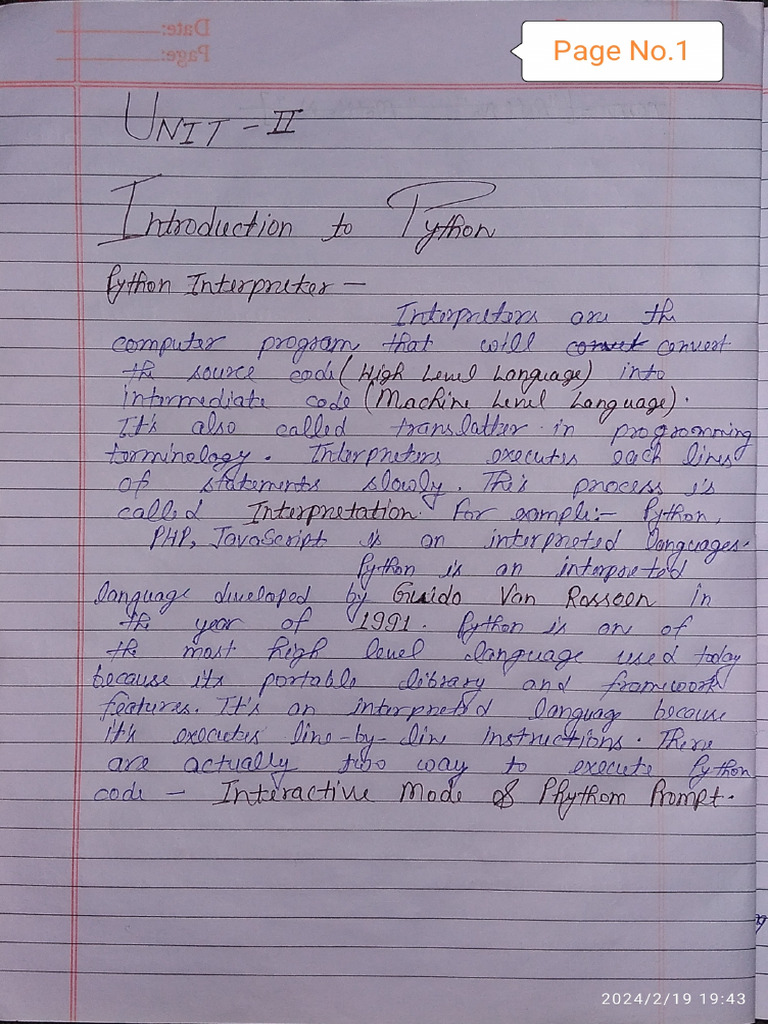 Date:
Page:
Page No.1
UNIT - II
Introduction to Python
Python Interpreter -
Interpreters are the
computer program that will convert
the source code (High Level Language) into
intermediate code (Machine Level Language).
It's also called translatter in programming
terminology. Interpreters executes each lines
of statements slowly. This process is
called Interpretation. For exmple:- Python,
PHP, JavaScript is an interpreted languages.
Python is an interpreted
language developed by Guido Van Rossoen in
the year of 1991. Python is on of
the most high level language used today
because its portable library and framework
features. It's an interpreted language because
it's executes line-by-line instructions. There
are actually two way to execute Python
code - Interactive Mode & Phythom Prompt.
2024/2/19 19:43